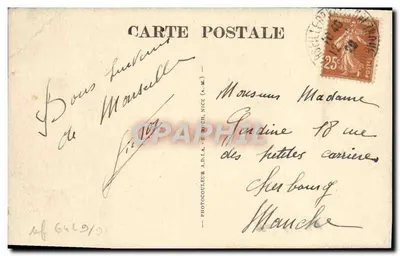 CARTE POSTALE
Bons Souvenirs
de Marseille
PHOTOCOULEUR A.D.I.A. NICE (A.-M.)
25c
CPAPHIL
Monsieur Madame
18 rue
des petites carrières
Cherbourg
Manche
ref 6429/3